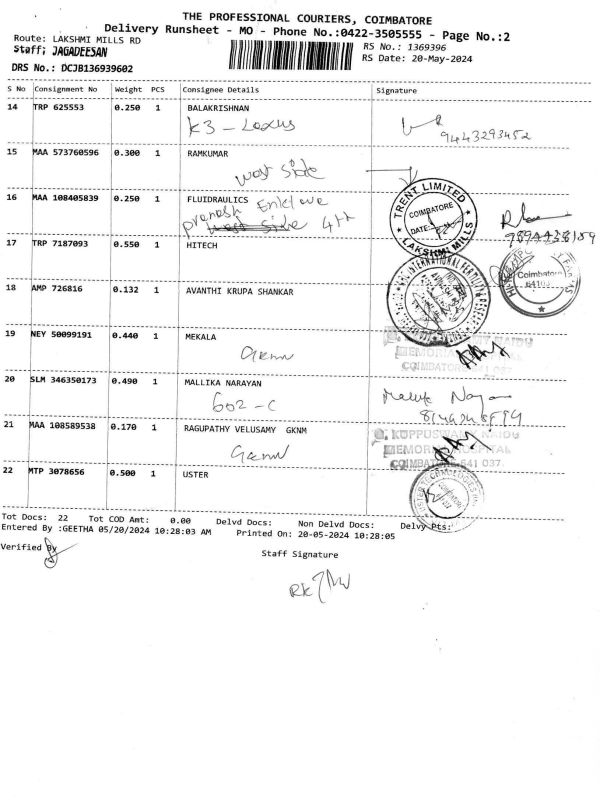 THE PROFESSIONAL COURIERS, COIMBATORE
Delivery Runsheet - MO - Phone No.:0422-3505555 - Page No.:2
Route: LAKSHMI MILLS RD
RS No.: 1369396
Staff: JAGADEESAN
RS Date: 20-May-2024
DRS No.: DCJB136939602
S No Consignment No Weight PCS Consignee Details Signature
14 TRP 625553 0.250 1 BALAKRISHNAN
K3 - Loxus
9443293452
15 MAA 573760596 0.300 1 RAMKUMAR
west side
16 MAA 108405839 0.250 1 FLUIDRAULICS
Enklave
west side 4th
TRENT LIMITED
COIMBATORE
DATE:
LAKSHMI MILLS
17 TRP 7187093 0.550 1 HITECH
Coimbatore
18 AMP 726816 0.132 1 AVANTHI KRUPA SHANKAR
19 NEY 50099191 0.440 1 MEKALA
Gknm
MEMORIAL
COIMBATORE 641 037
20 SLM 346350173 0.490 1 MALLIKA NARAYAN
602 - C
21 MAA 108589538 0.170 1 RAGUPATHY VELUSAMY GKNM
Gknm
G. KUPPUSWAMY NAIDU
MEMORIAL HOSPITAL
COIMBATORE 641 037
22 MTP 3078656 0.500 1 USTER
Tot Docs: 22 Tot COD Amt: 0.00 Delvd Docs: Non Delvd Docs: Delvy Pts:
Entered By :GEETHA 05/20/2024 10:28:03 AM Printed On: 20-05-2024 10:28:05
Verified By
Staff Signature